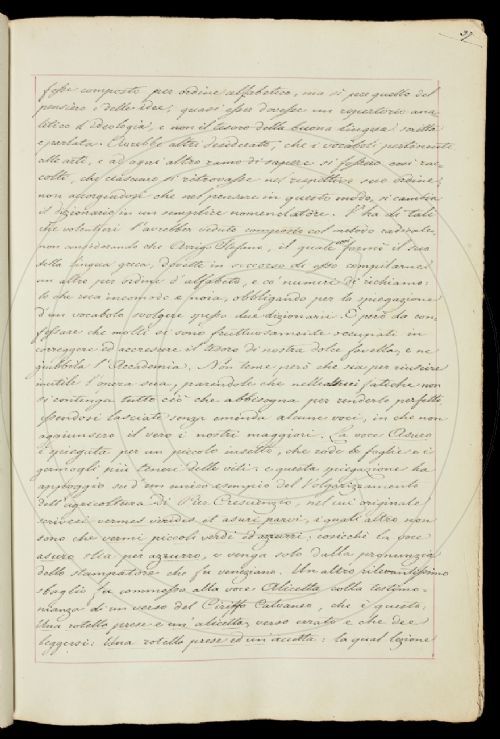 37
fosse composto per ordine alfabetico, ma si per quello del
pensiero e delle idee, quasi esser dovesse un repertorio ana-
litico d'Ideologia, e non il tesoro della buona lingua scritta
e parlata. Avrebbe altri desiderato, che i vocaboli pertinenti
alle arti, e ad ogni altro ramo di sapere si fossero così rac-
colti, che ciascuno si ritrovasse nel rispettivo suo ordine,
non accorgendosi che nel pensare in questo modo si cambia
il dizionario in un semplice nomenclatore. V'ha di tali
che volentieri l'avrebber veduto composto col metodo radicale,
non considerando che Arrigo Stefano, il quale formò il
della lingua greca, dovette in soccorso di esso compilarne
un altro per ordine d'alfabeto, e co' numeri di richiamo:
lo che reca incomodo e noia, obbligando per la spiegazione
d'un vocabolo svolgere spesso due dizionarii. È però da con-
fessare che molti si sono fruttuosamente occupati in
correggere ed accrescere il tesoro di nostra dolce favella, e ne
giubbila l'Accademia. Non teme però che sia per riuscire
inutile l'opera sua, parendole che nelle fatiche non
si contenga tutto ciò che abbisogna per renderlo perfetto
essendosi lasciate senza emenda alcune voci, in che non
aggiunsero il vero i nostri maggiori. La voce Asuro
è spiegata per un piccolo insetto, che rode le foglie e i
germogli più teneri delle viti: e questa spiegazione ha
appoggio su d'un unico esempio del Volgarizzamento
dell'agricoltura di Pier Crescenzio, nel cui originale
scrivesi vermes virides et asuri parvi, i quali altro non
sono che vermi piccoli verdi ed azzurri, cosicchè la voce
asuro stia per azzurro, e venga solo dalla pronunzia
dello stampatore che fu veneziano. Un altro rilevantissimo
sbaglio fu commesso alla voce Alicetta colla testimo-
nianza di un verso del Ciriffo Calvaneo, che è questo:
Una rotella prese e un'alicetta, verso errato e che dee
leggersi: Una rotella prese ed un'accetta: la qual lezione